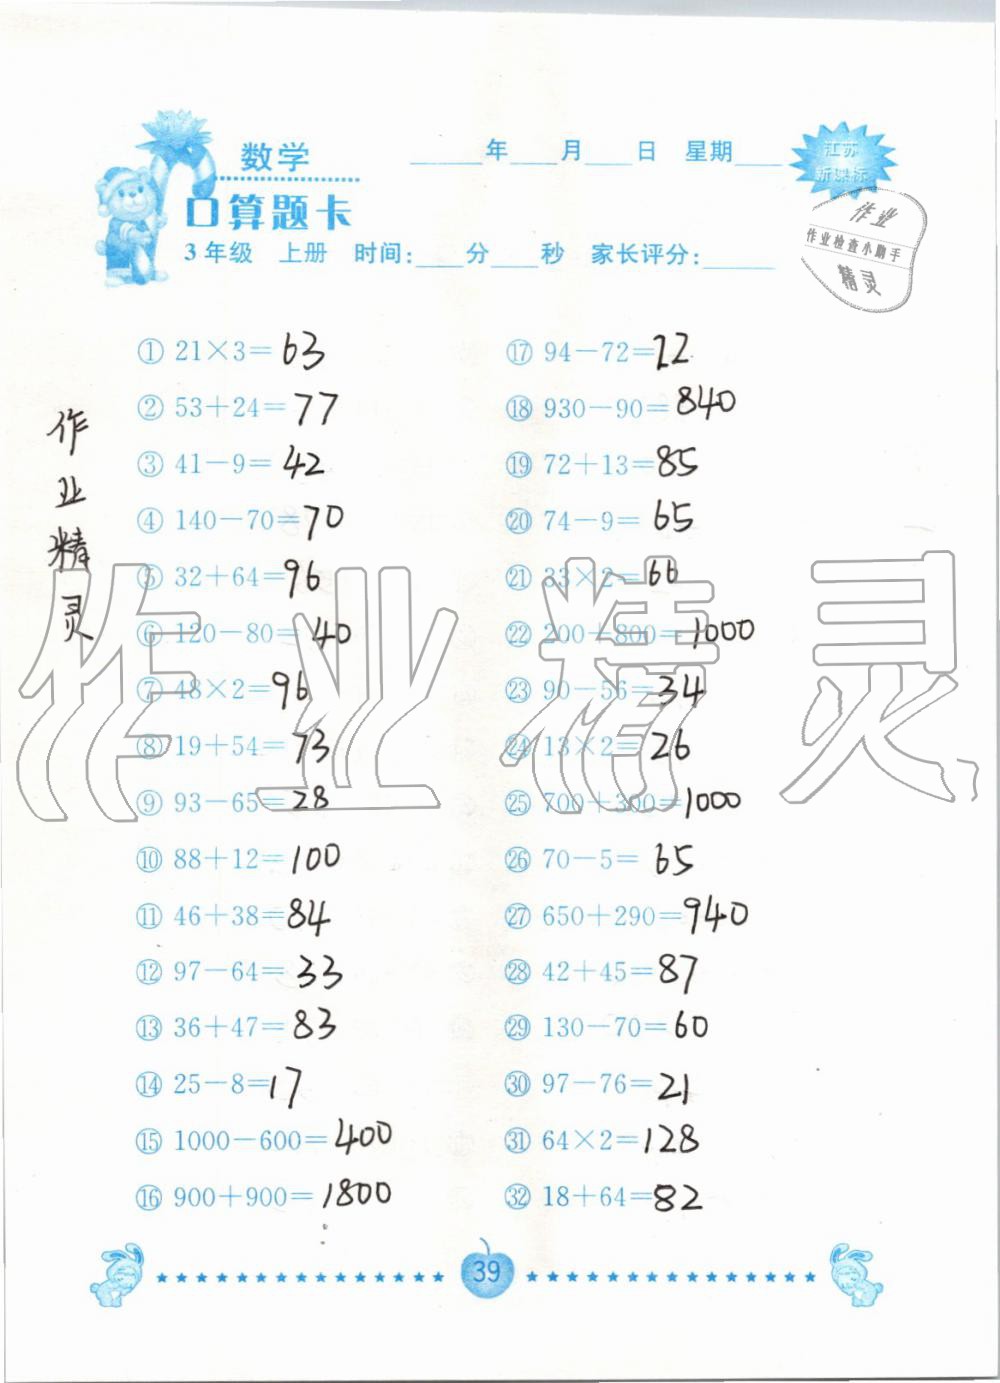 数学
____年___月___日 星期___
江苏
新课标
口算题卡
3年级 上册 时间:___分___秒 家长评分:____
作业
作业检查小助手
精灵
作业精灵
① 21×3=63
② 53+24=77
③ 41-9=42
④ 140-70=70
⑤ 32+64=96
⑥ 120-80=40
⑦ 48×2=96
⑧ 19+54=73
⑨ 93-65=28
⑩ 88+12=100
⑪ 46+38=84
⑫ 97-64=33
⑬ 36+47=83
⑭ 25-8=17
⑮ 1000-600=400
⑯ 900+900=1800
⑰ 94-72=22
⑱ 930-90=840
⑲ 72+13=85
⑳ 74-9=65
㉑ 33×2=66
㉒ 200+800=1000
㉓ 90-56=34
㉔ 13×2=26
㉕ 700+300=1000
㉖ 70-5=65
㉗ 650+290=940
㉘ 42+45=87
㉙ 130-70=60
㉚ 97-76=21
㉛ 64×2=128
㉜ 18+64=82
作业精灵
39